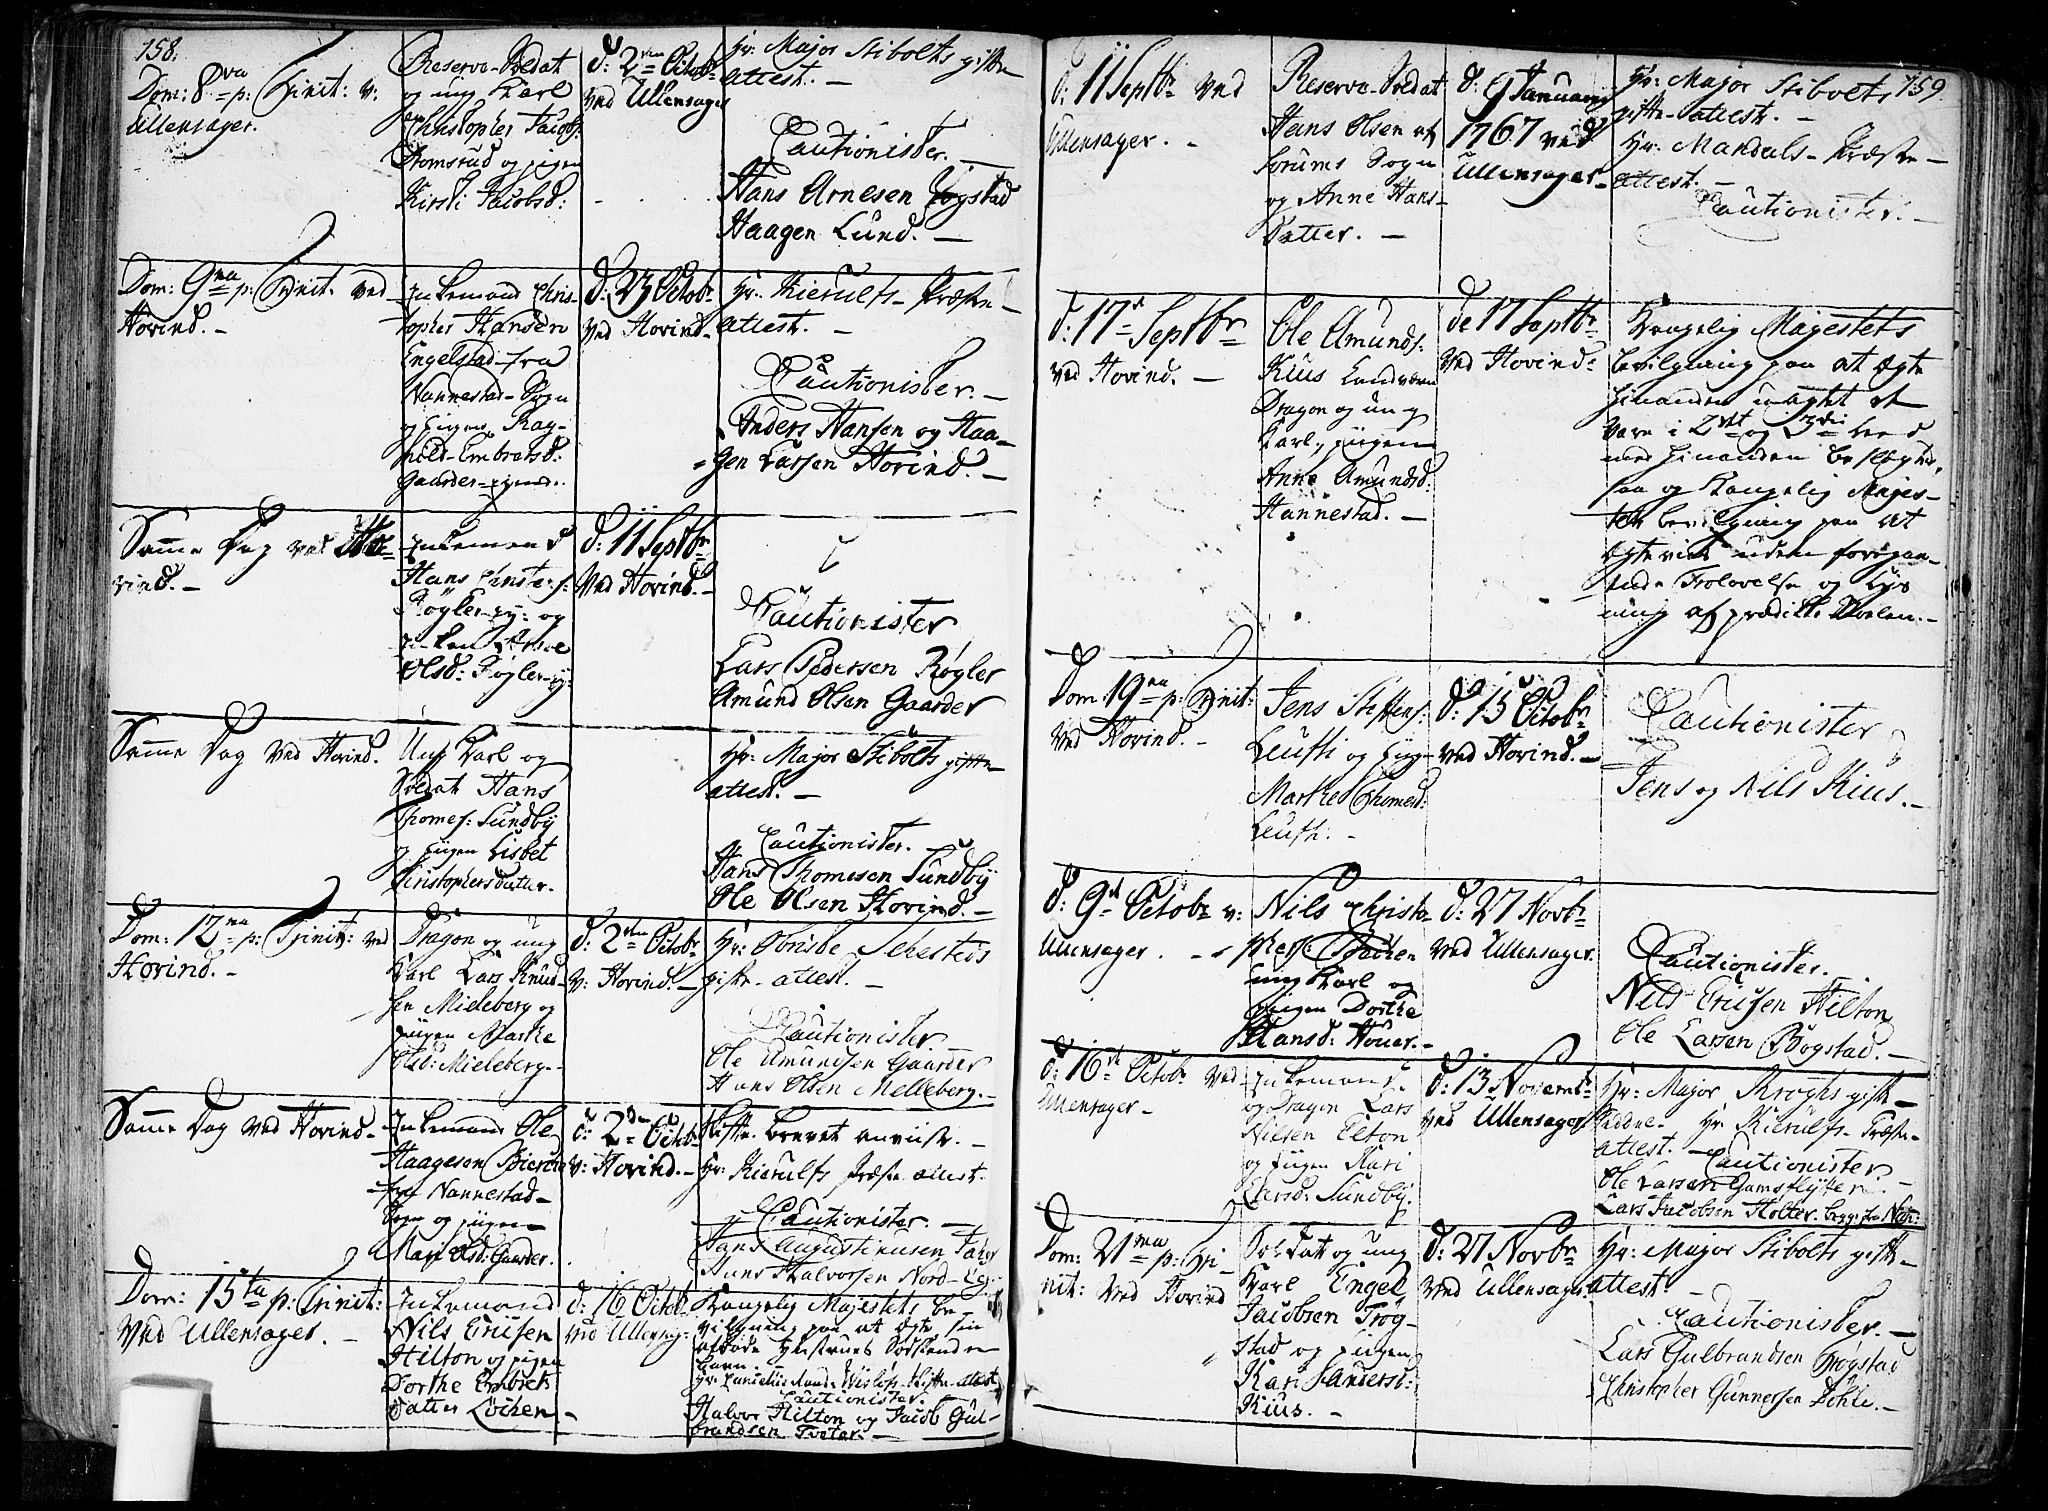 158.
Dom: 8va p: Trinit: v:
Ullensager.
Reserve-Soldat
og ung Karl
Christopher Jacobs:
Stomsrud og pigen
Kirsti Jacobsd:
d: 2den Octobr
ved Ullensager
Hr: Major Stibolts gifte
attest. —
Cautionister. —
Hans Arnesen Fogstad
Haagen Lund. —
Dom: 9na p: Trinit: ved
Hovind. —
Enkemand Chris-
topher Hansen
Engelstad fra
Nannestad-Sogn
og pigen Rag-
nild Embretsd:
Gaarder-ejend:
d: 23 Octobr
ved Hovind. —
Hr. Kierulfs Præste-
attest. —
Cautionister. —
Anders Hansen og Haa-
gen Larsen Hovind. —
Samme Dag ved Ho-
vind. —
Enkemand
Hans Christens:
Røgler-ej: og
enken
Olsd: Røgler-ej:
d: 11 Septbr
ved Hovind. —
Cautionister
Lars Pedersen Røgler
Amund Olsen Gaarder
Samme Dag ved Hovind.
Ung Karl og
Soldat Hans
Thomes: Sundby
og pigen Lisbet
Christophersdatter.
Hr: Major Stibolts gifte
attest. —
Cautionister.
Hans Thomesen Sundby
Ole Olsen Hovind. —
Dom: 12ma p: Trinit: ved
Hovind. —
Dragon og ung
Karl Lars Knud-
sen Mieleberg og
pigen Marthe
Olsd: Mieleberg. —
d: 2den Octobr
v: Hovind. —
Hr: Obriste Sehesteds
gifte-attest. —
Cautionister.
Ole Amundsen Gaarder
Hans Olsen Melleberg. —
Samme Dag ved Hovind. —
Enkemand Ole
Haagesen Bierche
fra Nannestad-
Sogn og pigen
Mari Olsd: Gaarder.
d: 2den Octobr
v: Hovind. —
Skifte-brevet anviist. —
Hr: Kierulfs Præste attest.
Cautionister. —
Hans Augustinusen
Hans Halvorsen Nord-
Dom: 15ta p: Trinit:
ved Ullensager. —
Enkemand
Nils Erichsen
Hilton og pigen
Dorthe Embrets
Datter Løchen —
d: 16 Octobr
ved Ullensag:
Kongelig Majestets be-
vilgning paa at ægte sin
afdøde Hustrues Sødskende
barn.
Cautionister.
Halvor Hilton og Jacob Gul-
brandsen Tveter. —
159.
d: 11 Septbr ved
Ullensager. —
Reserve-Soldat
Hans Olsen af
Sørums Sogn
og Anne Hans-
Datter. —
d. 9 Januarij
1767 ved
Ullensager —
Hr: Major Stibolts
gifte-attest. —
Hr: Mandals-Præste-
attest. —
Cautionister. —
d: 17d Septbr
ved Hovind. —
Ole Amunds:
Kius Landværn
Dragon og ung
Karl, pigen
Anne Amundsd:
Hannestad. —
de 17 Septbr
ved Hovind:
Kongelig Majestets
bevilgning paa at ægte
hinanden uagtet at
være i 2det og 3die Leed
med hinanden beslægtede,
saa og Kongelig Majes-
tets bevilgning paa at
ægtevies uden foregaa-
ende Trolovelse og Lys
ning af prædike Stolen. —
Dom: 19na p: Trinit:
ved Hovind. —
Jens Steffens:
Leuthi og pig-
Marthe Thomesd:
Leuth: —
d: 15 Octobr
ved Hovind. —
Cautionister
Jens og Nils Kius. —
d: 9d Octobr v:
Ullensager. —
Nils Christo-
phers: Backen
ung Karl og
pigen Dorthe
Hansd: Houer. —
d: 27 Novbr
ved Ullensager.
Cautionister.
Nils Erichsen Hilton
Ole Larsen Bogstad. —
d: 16d Octobr ved
Ullensager —
Enkemand
og Dragon Lars
Nilsen Elton
og pigen Kari
Larsd: Sundby.
d: 13 Novembr
ved Ullensager
Hr: Major Kroghs gifte-
seddel. Hr Kierulfs Præste-
attest. — Cautionister
Ole Larsen
Lars Jacobsen Holter. begge fra
Dom: 21ma p: Tri-
nit: ved Hovind
Soldat og ung
Karl Engel
Jacobsen Trøg-
stad og pigen
Kari Sandersd:
Kius. —
d: 27 Novbr
ved Ullensager.
Hr: Major Stibolts gifte-
attest. —
Cautionister. —
Lars Gulbrandsen Trøgstad
Christopher Gunnersen Døhli. —